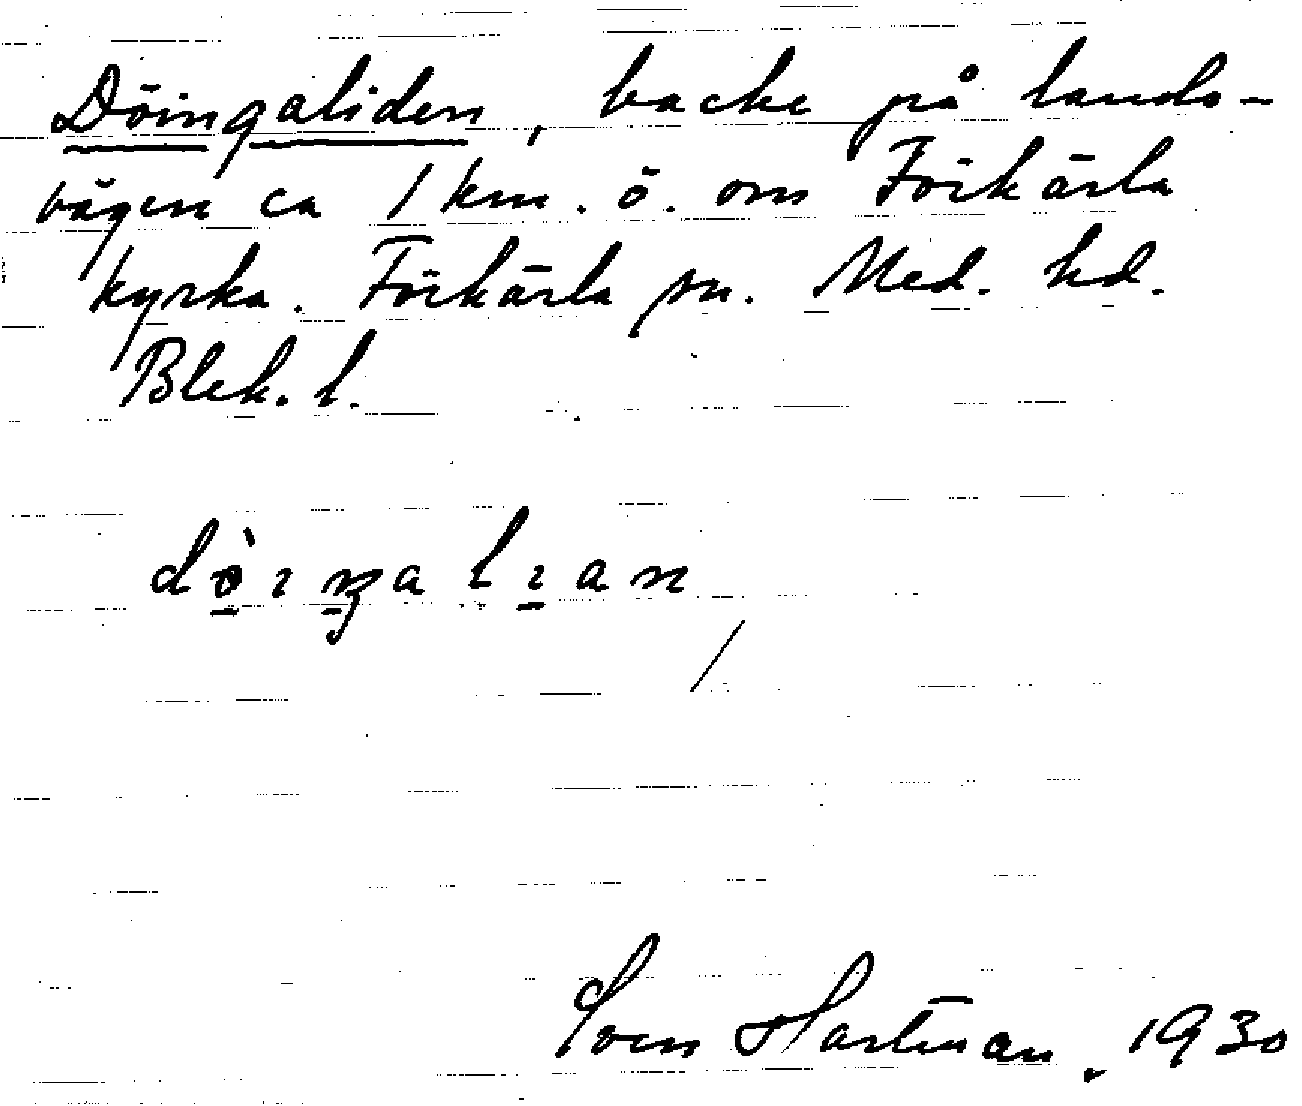 Döingaliden, backe på lands-
vägen ca 1 km. ö. om Förkärla
kyrka. Förkärla sn. Med. hd.
Blek. l.
Sven Hartman. 1930